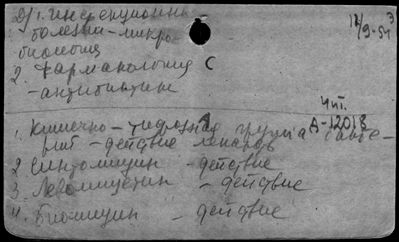 Д/ 1. Инфекционные
болезни - микро-
биология
12/9-54 3
2. Фармакология С
- антибиотики
Чит.
А-12018
1. Кишечно - тифозная группа
- действие лекарств
2 Синтомицин - действие
3. Левомицетин - действие
4. Биомицин - действие